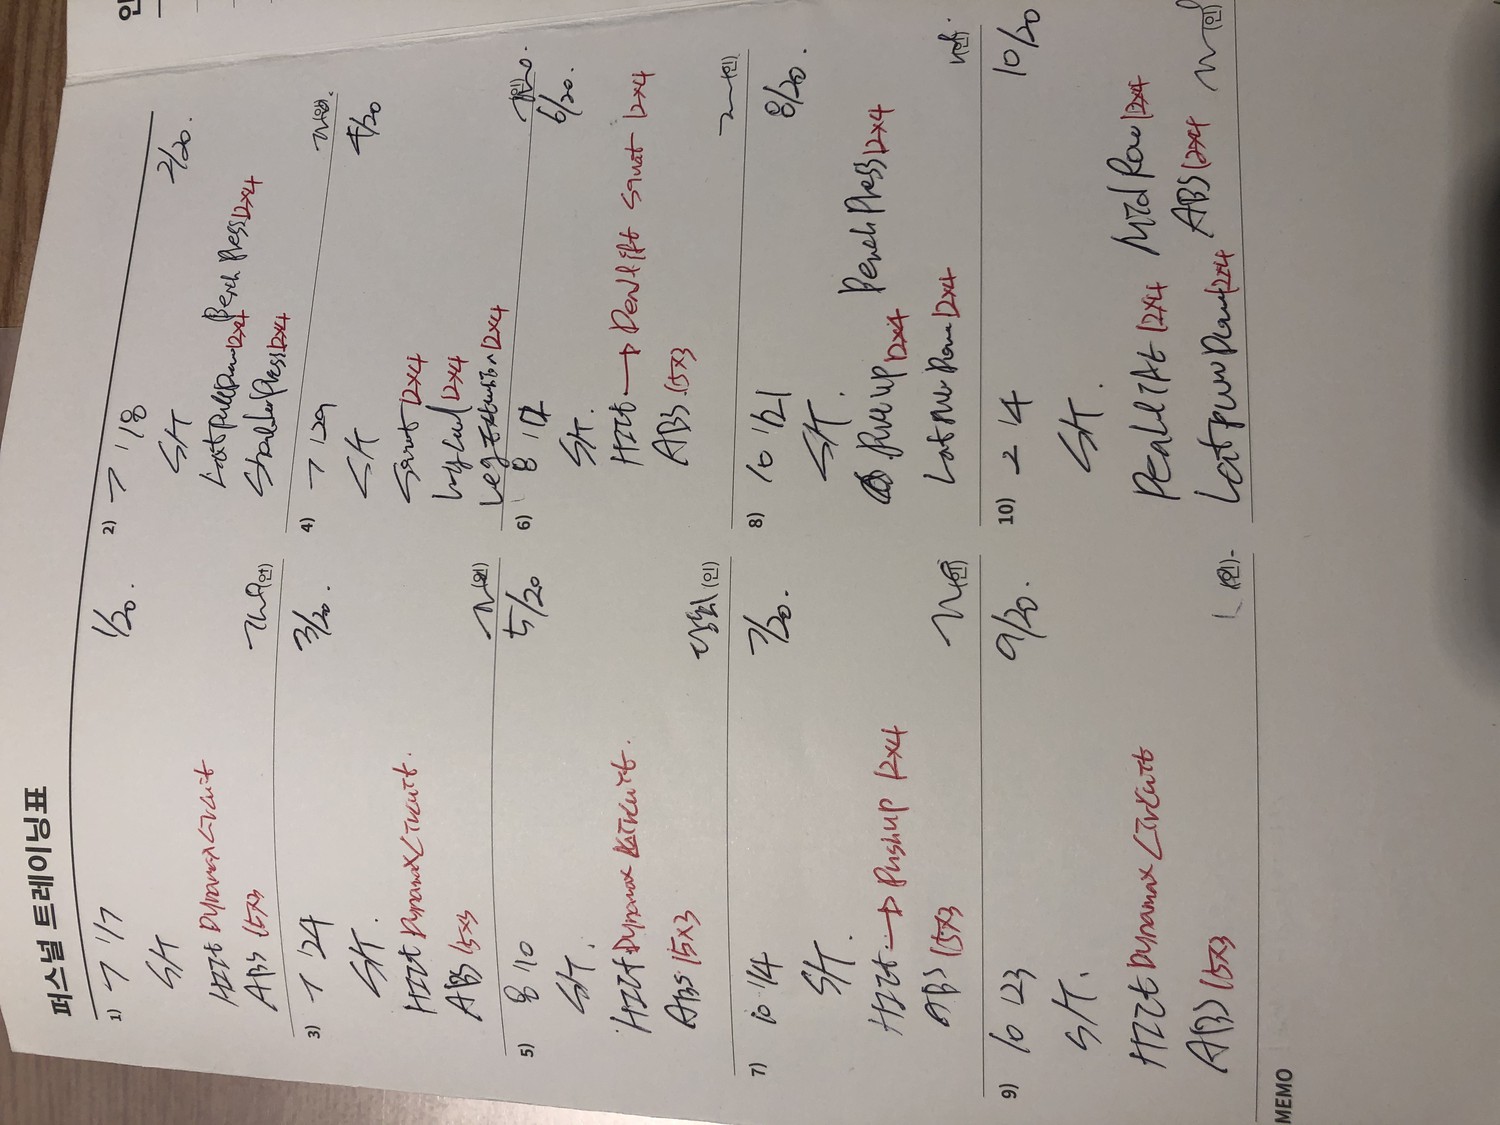 퍼스널 트레이닝표
1) 7 '17 1/20.
S/T
HIIt Dynamax Circuit
ABS 15x3
(인)
2) 7 '18 2/20.
S/T
Lat pull down 12x4 Bench Press 12x4
Shoulder Press 12x4
(인)
3) 7 '24 3/20.
S/T.
HIIt Dynamax Circuit.
ABS 15x3
(인)
4) 7 '29 4/20
S/T
Squat 12x4
Leg Curl 12x4
Leg Extension 12x4
(인)
5) 8 '10 5/20
S/T.
HIIt Dynamax Circuit.
ABS 15x3
(인)
6) 8 '17 6/20.
S/T.
HIIt → Deadlift squat 12x4
ABS. 15x3
(인)
7) 10 '14 7/20.
S/T.
HIIt → Push up 12x4
ABS 15x3
(인)
8) 10 '21 8/20.
S/T.
12x4 Bench Press 12x4
12x4
(인)
9) 10 '23 9/20.
S/T.
HIIt Dynamax Circuit
ABS 15x3
(인)
10) 2 '4 10/20
S/T.
Deadlift 12x4 Mid Row 12x4
Lat pull Down 12x4 ABS 12x4
(인)
MEMO